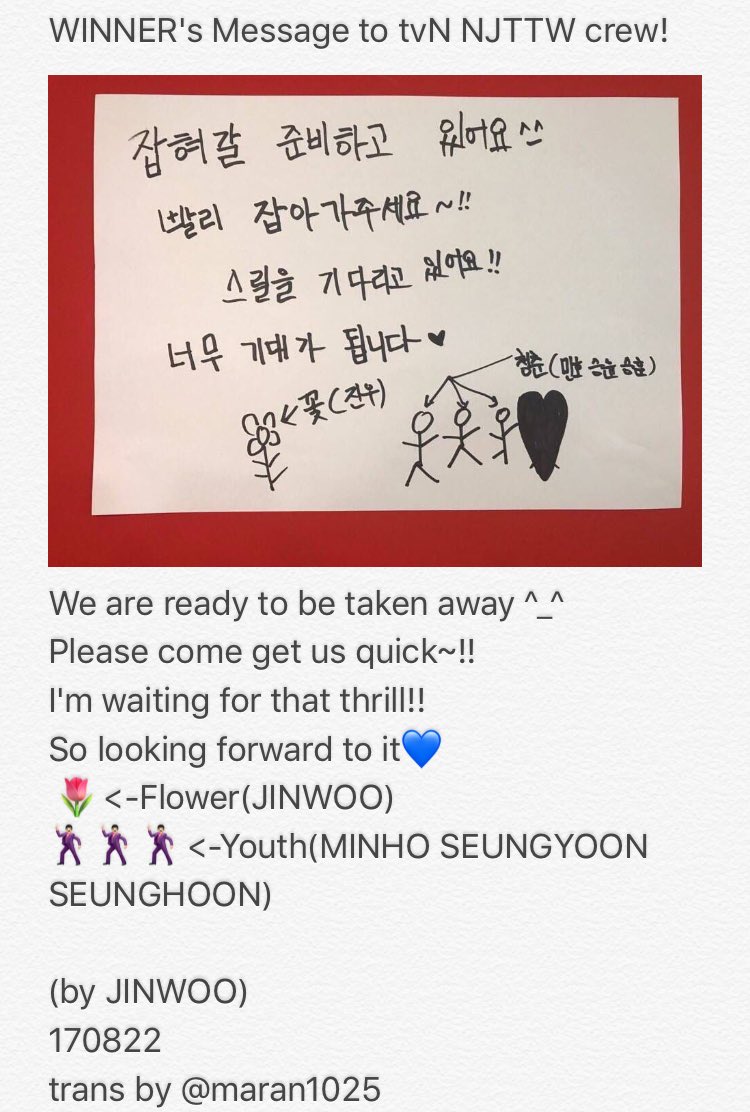 WINNER's Message to tvN NJTTW crew!
잡혀갈 준비하고 있어요^^
빨리 잡아가주세요~!!
스릴을 기다리고 있어요!!
너무 기대가 됩니다♥
←꽃(진우)
청춘(민호 승윤 승훈)
We are ready to be taken away ^_^
Please come get us quick~!!
I'm waiting for that thrill!!
So looking forward to it💙
🌷 <-Flower(JINWOO)
🕺🕺🕺 <-Youth(MINHO SEUNGYOON
SEUNGHOON)
(by JINWOO)
170822
trans by @maran1025